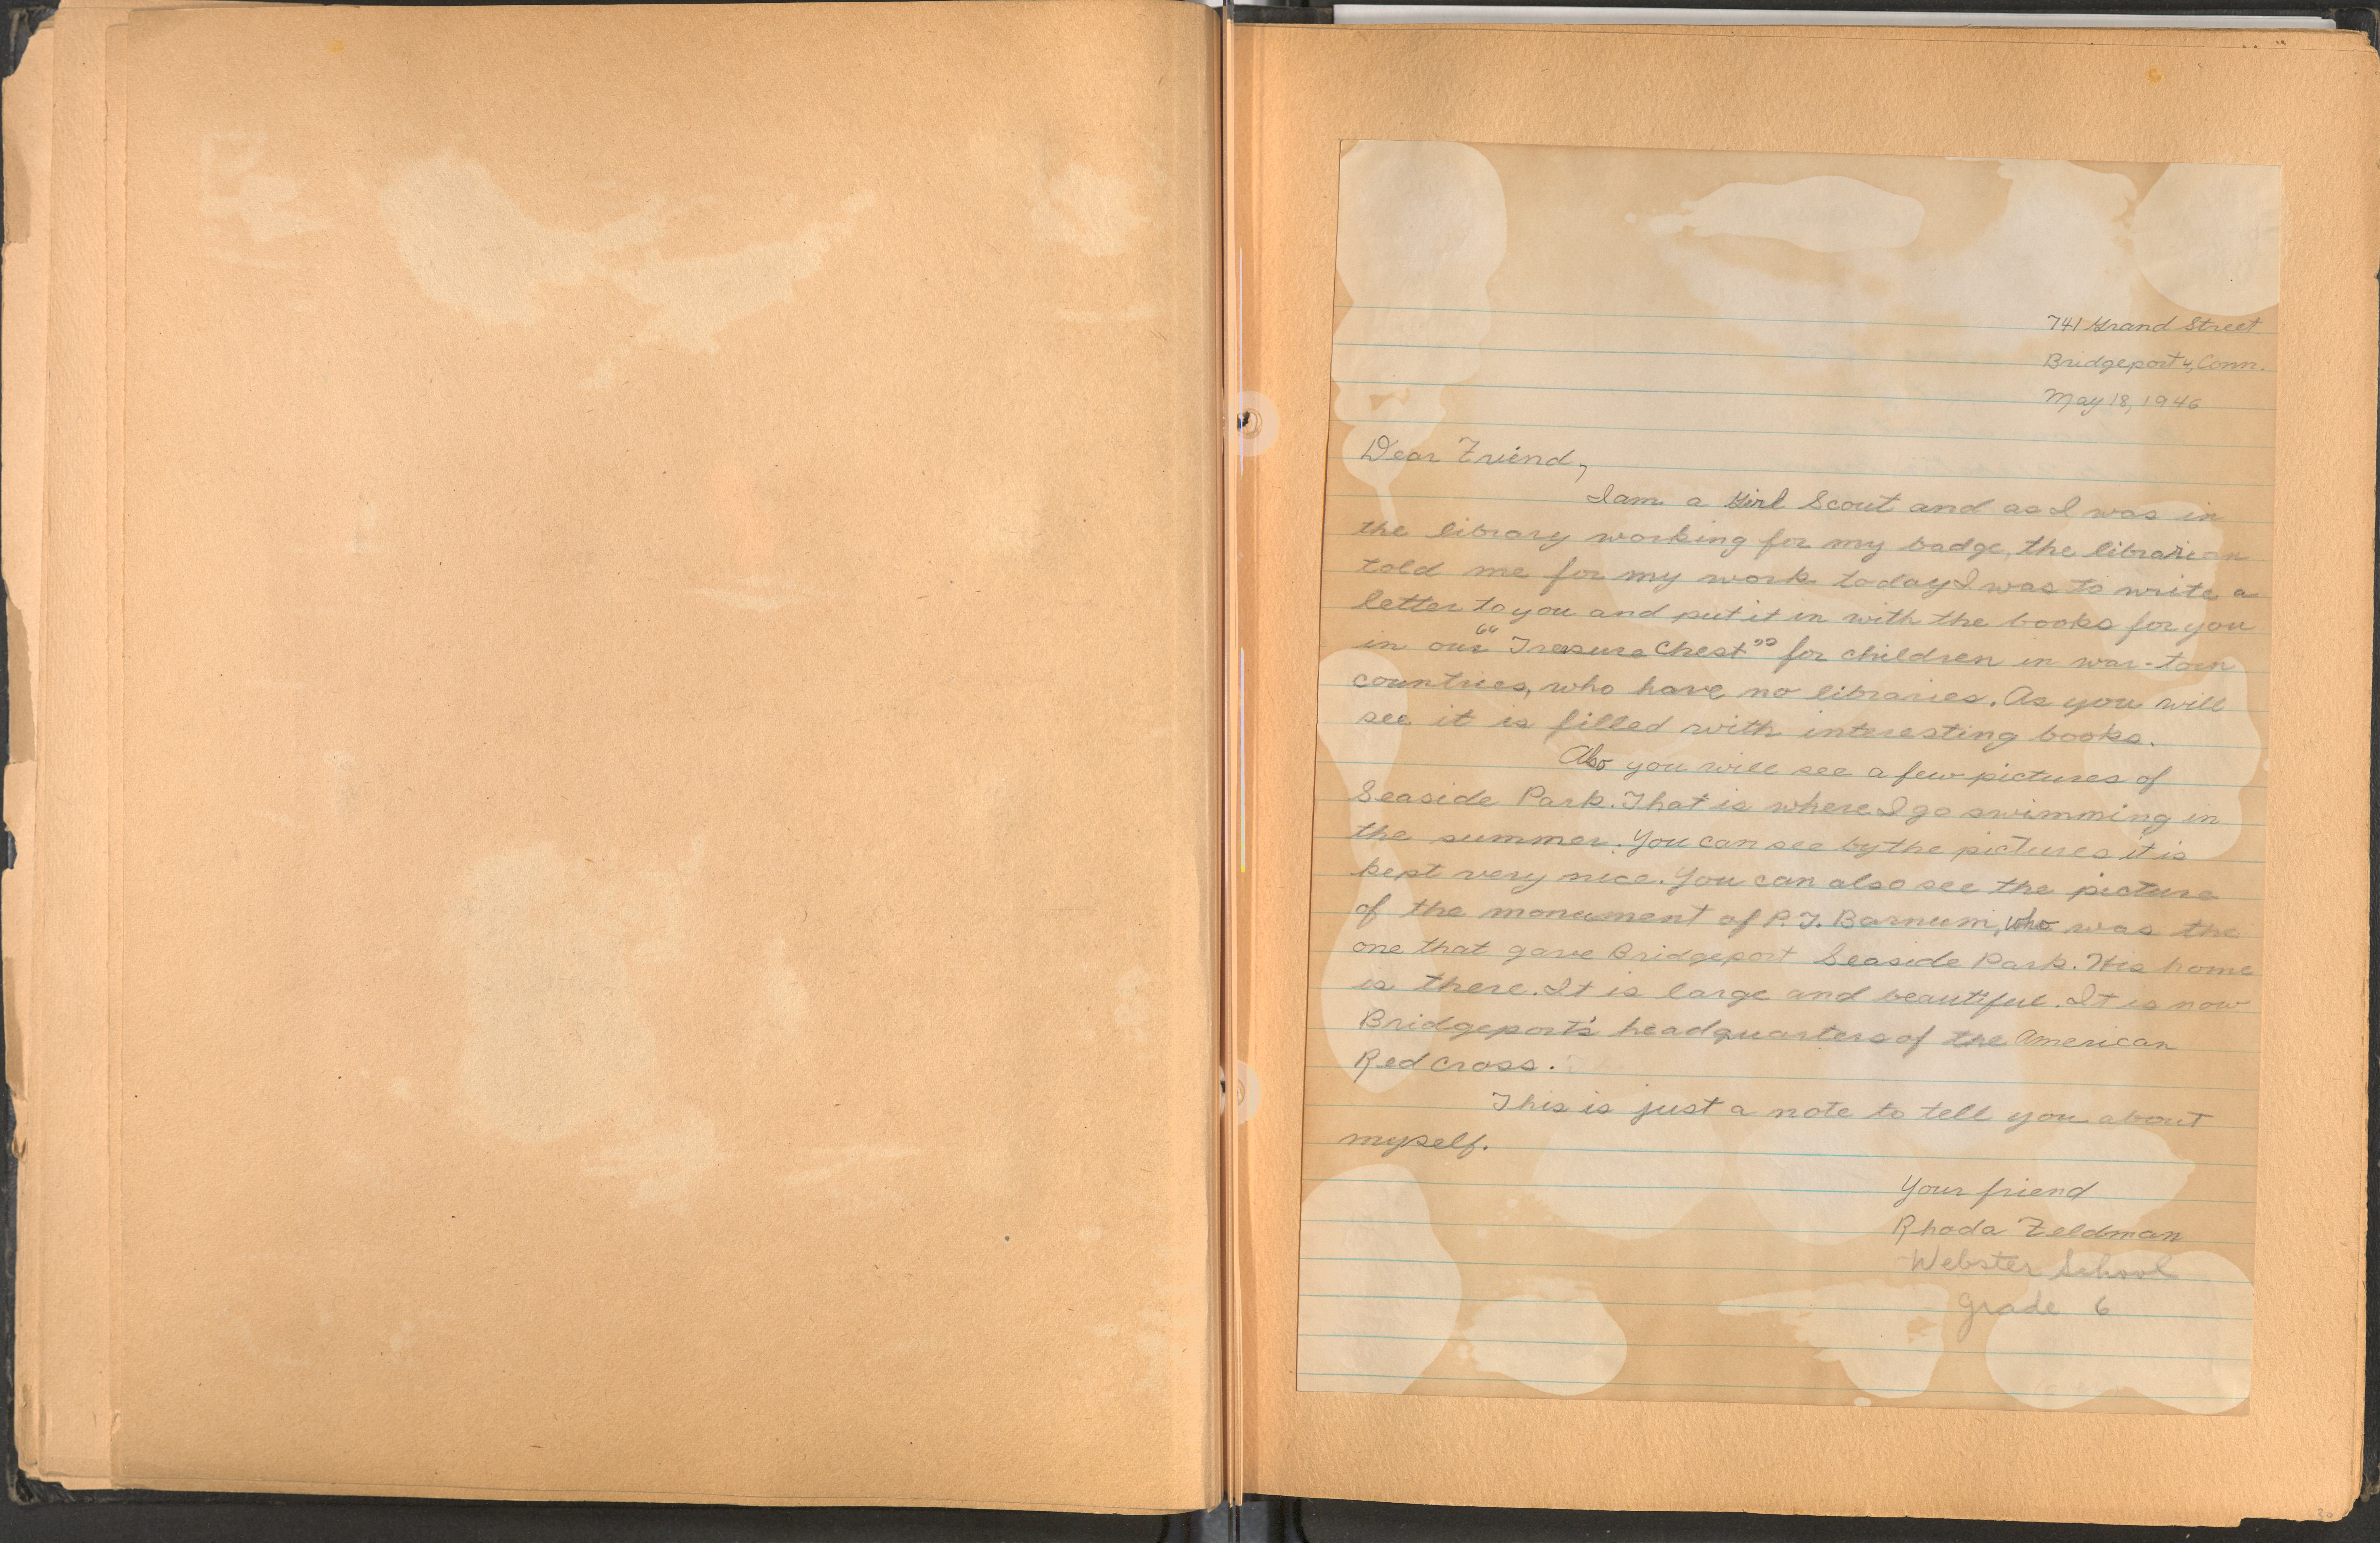 741 Grand Street
Bridgeport 4, Conn.
May 18, 1946
Dear Friend,
I am a Girl Scout and as I was in
the library working for my badge, the librarian
told me for my work today I was to write a
letter to you and put it in with the books for you
in our "Treasure Chest" for children in war-torn
countries, who have no libraries. As you will
see it is filled with interesting books.
Also you will see a few pictures of
Seaside Park. That is where I go swimming in
the summer. You can see by the pictures it is
kept very nice. You can also see the picture
of the monument of P.T. Barnum, who was the
one that gave Bridgeport Seaside Park. His home
is there. It is large and beautiful. It is now
Bridgeport's headquarters of the American
Red Cross.
This is just a note to tell you about
myself.
Your friend
Rhoda Feldman
Webster School
Grade 6